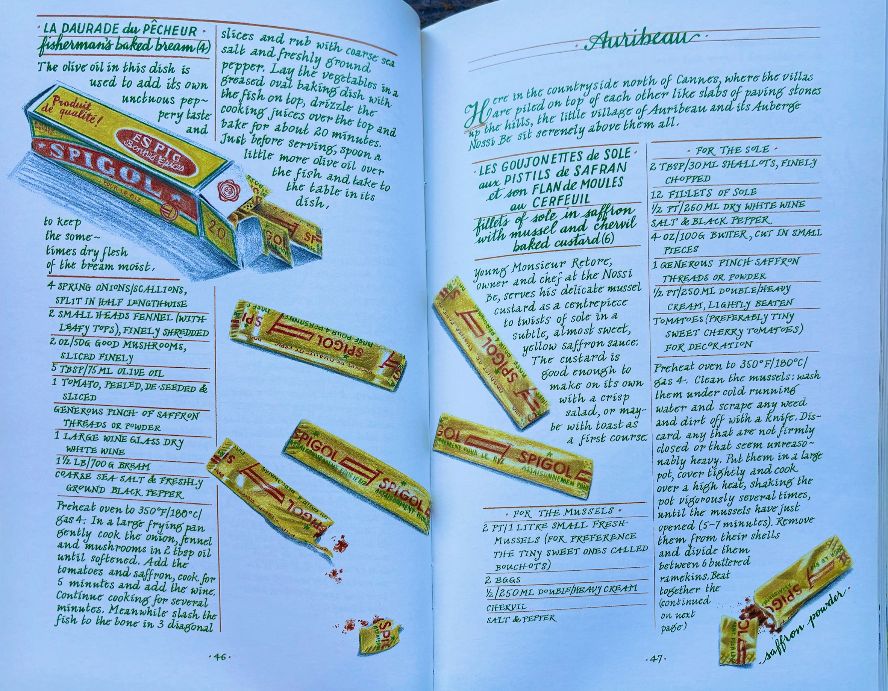 · LA DAURADE du PÊCHEUR ·
fisherman's baked bream (4)
The olive oil in this dish is
used to add its own
unctuous pep-
pery taste
and
Produit
de qualité!
ESPIG
SPIGOL
to keep
the some-
times dry flesh
of the bream moist.
4 SPRING ONIONS/SCALLIONS,
SPLIT IN HALF LENGTHWISE
2 SMALL HEADS FENNEL (WITH
LEAFY TOPS), FINELY SHREDDED
2 OZ/50G GOOD MUSHROOMS,
SLICED FINELY
5 TBSP/75 ML OLIVE OIL
1 TOMATO, PEELED, DE-SEEDED &
SLICED
GENEROUS PINCH OF SAFFRON
THREADS OR POWDER
1 LARGE WINE GLASS DRY
WHITE WINE
1½ LB/700G BREAM
COARSE SEA SALT & FRESHLY
GROUND BLACK PEPPER
Preheat oven to 350°F/180°C/
gas 4. In a large frying pan
gently cook the onion, fennel
and mushrooms in 2 tbsp oil
until softened. Add the
tomatoes and saffron, cook for
5 minutes and add the wine.
Continue cooking for several
minutes. Meanwhile slash the
fish to the bone in 3 diagonal
slices and rub with coarse sea
salt and freshly ground
pepper. Lay the vegetables in a
greased oval baking dish with
the fish on top, drizzle the
cooking juices over the top and
bake for about 20 minutes.
Just before serving, spoon a
little more olive oil over
the fish and take to
the table in its
dish.
SPIGOL
SPIGOL
SPIGOL
SPIGOL
· 46 ·
· Auribeau ·
Here in the countryside north of Cannes, where the villas
are piled on top of each other like slabs of paving stones
up the hills, the little village of Auribeau and its Auberge
Nossi Be sit serenely above them all.
· LES GOUJONETTES de SOLE ·
aux PISTILS de SAFRAN
et son FLAN de MOULES
au CERFEUIL
fillets of sole in saffron
with mussel and chervil
baked custard (6)
Young Monsieur Retore,
owner and chef at the Nossi
Be, serves his delicate mussel
custard as a centrepiece
to twists of sole in a
subtle, almost sweet,
yellow saffron sauce.
The custard is
good enough to
make on its own
with a crisp
salad, or may-
be with toast as
a first course.
SPIGOL
SPIGOL
· FOR THE MUSSELS ·
2 PT/1 LITRE SMALL FRESH
MUSSELS (FOR PREFERENCE
THE TINY SWEET ONES CALLED
BOUCHOTS)
2 EGGS
½/250 ML DOUBLE/HEAVY CREAM
CHERVIL
SALT & PEPPER
· FOR THE SOLE ·
2 TBSP/30 ML SHALLOTS, FINELY
CHOPPED
12 FILLETS OF SOLE
½ PT/260 ML DRY WHITE WINE
SALT & BLACK PEPPER
4 OZ/100G BUTTER, CUT IN SMALL
PIECES
1 GENEROUS PINCH SAFFRON
THREADS OR POWDER
½ PT/250 ML DOUBLE/HEAVY
CREAM, LIGHTLY BEATEN
TOMATOES (PREFERABLY TINY
SWEET CHERRY TOMATOES)
FOR DECORATION
Preheat oven to 350°F/180°C/
gas 4. Clean the mussels: wash
them under cold running
water and scrape any weed
and dirt off with a knife. Dis-
card any that are not firmly
closed or that seem unreaso-
nably heavy. Put them in a large
pot, cover tightly and cook
over a high heat, shaking the
pot vigorously several times,
until the mussels have just
opened (5-7 minutes). Remove
them from their shells
and divide them
between 6 buttered
ramekins. Beat
together the
(continued
on next
page)
SPIGOL
saffron powder.
· 47 ·